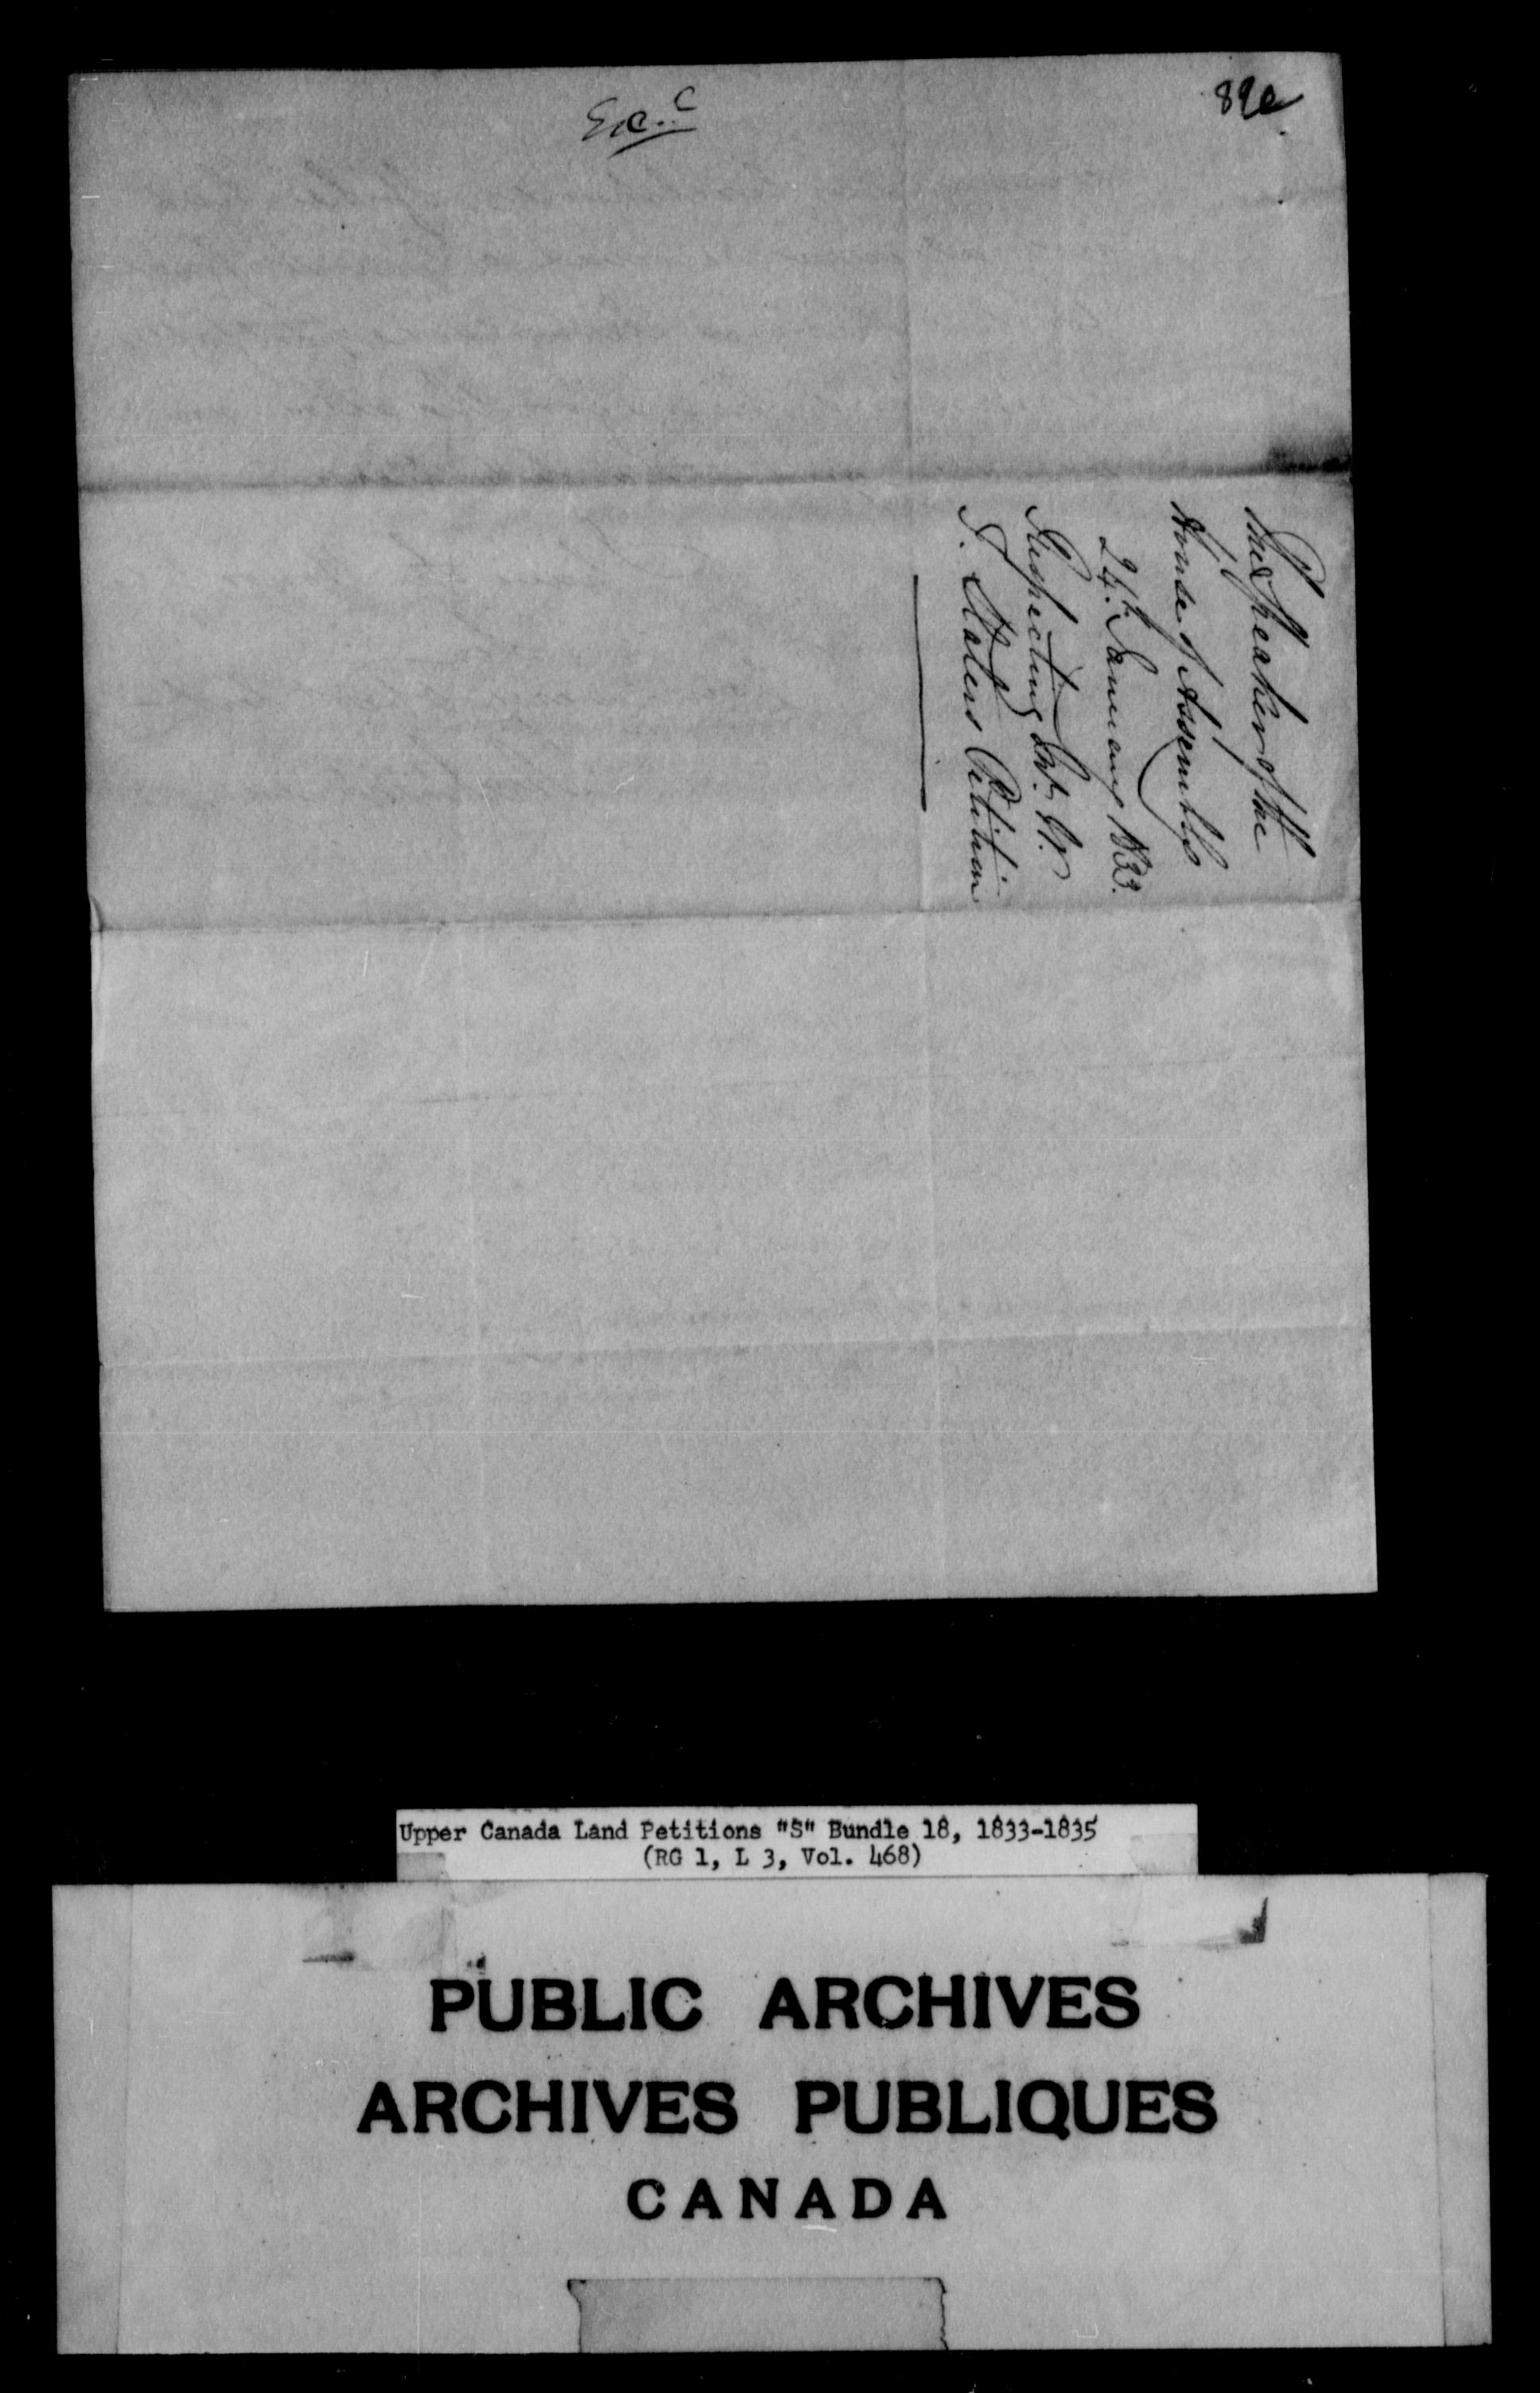 89e
Ex. C
The Speaker of the
House of Assembly
24th January 1833.
Respecting Lt. W.
S. Petition
Upper Canada Land Petitions "S" Bundle 18, 1833-1835
(RG 1, L 3, Vol. 468)
PUBLIC ARCHIVES
ARCHIVES PUBLIQUES
CANADA